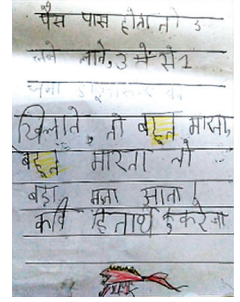 पैसे पास होता तो 3
लाते, 3 मे से 1
खिलाते, तो बहुत मारता,
बहुत मारता तो
बड़ा मजा आता!
कवि हितार्थ कुकरेजा